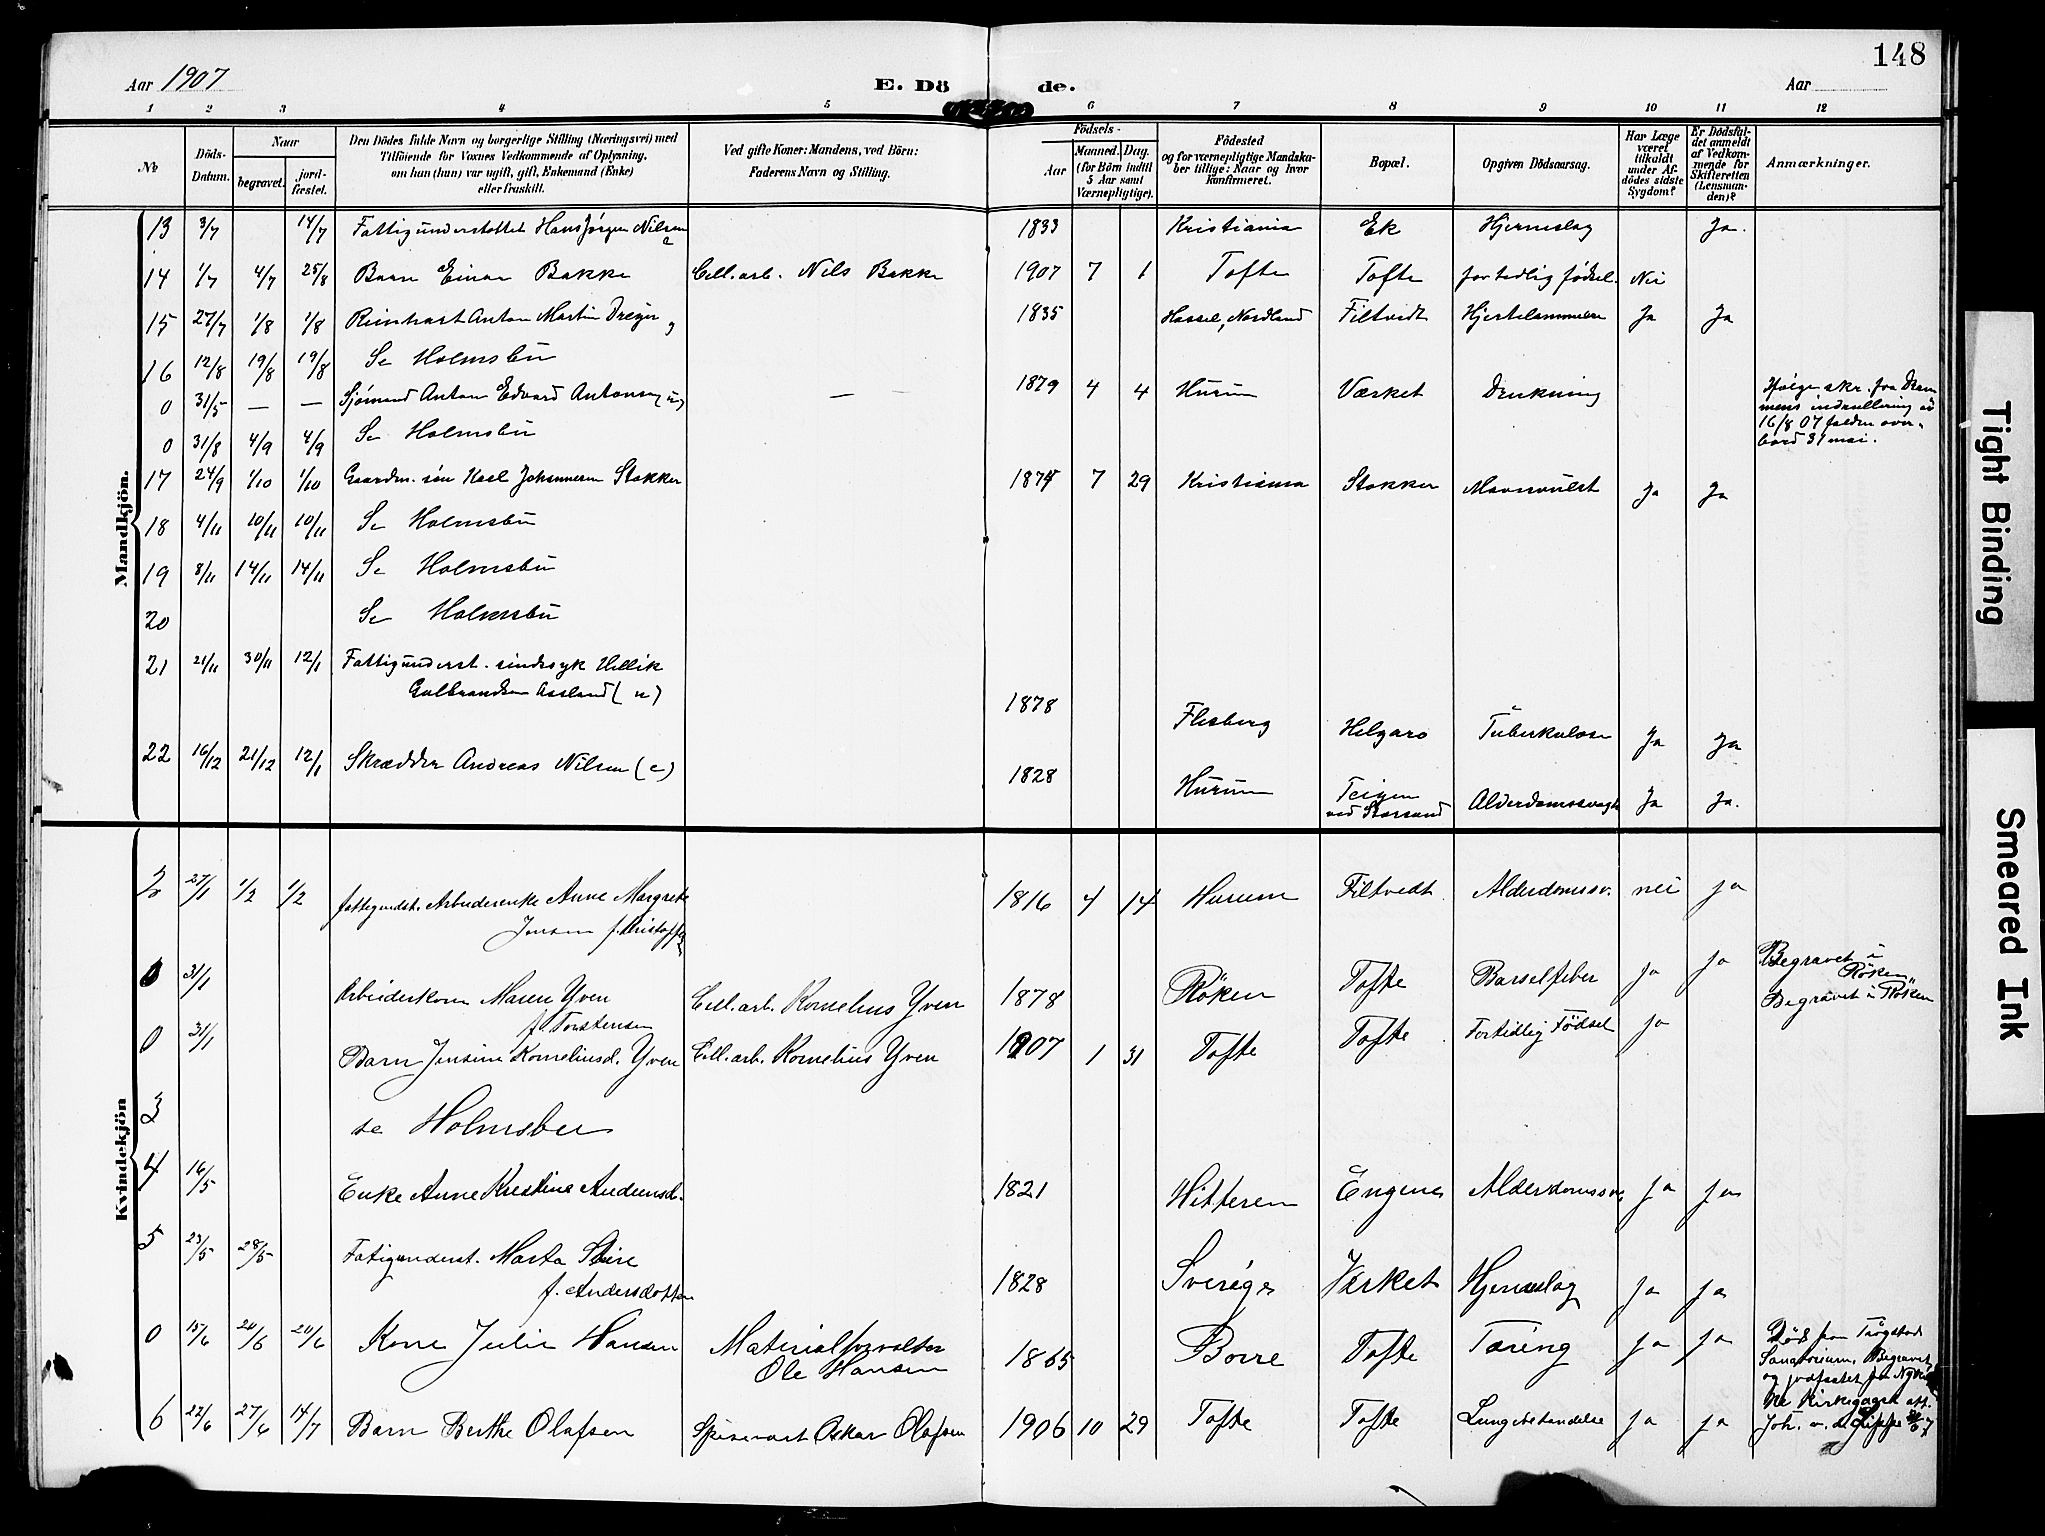 148
Aar 1907
E. Dö de.
Aar
1 2 3 4 5 6 7 8 9 10 11 12
№
Döds-Datum.
Naar
begravet.
jord-fæstet.
Den Dödes fulde Navn og borgerlige Stilling (Næringsvei) med
Tilföiende for Voxnes Vedkommende af Oplysning,
om han (hun) var ugift, gift, Enkemand (Enke)
eller fraskilt.
Ved gifte Koner: Mandens, ved Börn:
Faderens Navn og Stilling.
Födsels-
Aar
Maaned. Dag.
(for Börn indtil
5 Aar samt
Værnepligtige).
Födested
og for værnepligtige Mandska-
ber tillige: Naar og hvor
konfirmeret.
Bopæl.
Opgiven Dödsaarsag.
Har Læge
været
tilkaldt
under Af-
dödes sidste
Sygdom?
Er Dödsfal-
det anmeldt
af Vedkom-
mende for
Skifteretten
(Lensman-
den)?
Anmærkninger.
Mandkjön.
13 3/7 14/7 Fattigunderstøttet Hans Jörgen Nilsen 1833 Kristiania Ek Hjerneslag Ja.
14 1/7 4/7 25/8 Barn Einar Bakke Cell. arb. Nils Bakke 1907 7 1 Tofte Tofte for tidlig fødsel. Nei
15 27/7 1/8 1/8 Reinhart Anton Martin Dreyer g 1835 Hassel, Nordland Filtvedt Hjertelammelse Ja Ja
16 12/8 19/8 19/8 Se Holmsbu
0 31/5 — — Sjømand Anton Edvard Antonsen (u) — — 1879 4 4 Hurum Værket Drukning
Ifølge skr. fra Dram
mens indrullering av
16/8 07 falden over-
bord 31 mai.
0 31/8 4/9 4/9 Se Holmsbu
17 24/9 1/10 1/10 Gaardm. søn Karl Johannesen Stokker 1874 7 29 Kristiania Stokker Mavesvulst Ja Ja
18 4/11 10/11 10/11 Se Holmsbu
19 8/11 14/11 14/11 Se Holmsbu
20 Se Holmsbu
21 21/11 30/11 12/1 Fattigunderst. sindssyk Hellik
Gulbrandsen Aasland (u) 1878 Flesberg Helgaro Tuberkulose Ja Ja
22 16/12 21/12 12/1 Skrædder Andreas Nilsen (e) 1828 Hurum Teigen
ved Storsand Alderdomssvagh Ja Ja.
Kvindekjön
2 27/1 1/2 1/2 fattigundst. Arbeiderenke Anne Margrete
Jensen f. Kristoffe 1816 4 14 Hurum Filtvedt Alderdomssv. nei Ja
0 31/1 Arbeiderkone Maren Yven
f. Torstensen Cell. arb. Kornelius Yven 1878 Röken Tofte Barselfeber Ja Ja Begravet i
Röken
0 31/1 Barn Jensine Korneliusd. Yven Cell. arb. Kornelius Yven 1907 1 31 Tofte Tofte Fortidlig Födsel Ja Begravet i Röken
3 se Holmsbu
4 16/5 Enke Anne Kristine Andersd. 1821 Hitteren Engene Alderdomssv. Ja Ja
5 23/5 28/5 Fatigunderst. Marta
f. Andersdotter 1828 Sverige Værket Hjerneslag Ja Ja
0 15/6 20/6 20/6 Kone Julie Hansen Materialforvalter
Ole Hansen 1865 Borre Tofte Tæring Ja Ja
Død paa
Sanatorium. Begravet
og jordfæstet paa
6 22/6 27/6 14/7 Barn Berthe Olafsen Spisevært Oskar Olafsen 1906 10 29 Tofte Tofte Lungebetændelse Ja Ja
Kirkegaard att.
Joh. v. d. Lippe
Tight Binding
Smeared Ink